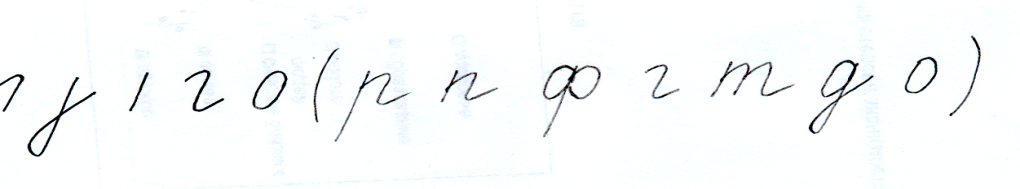 у 1 г о ( р п ф г т д о )